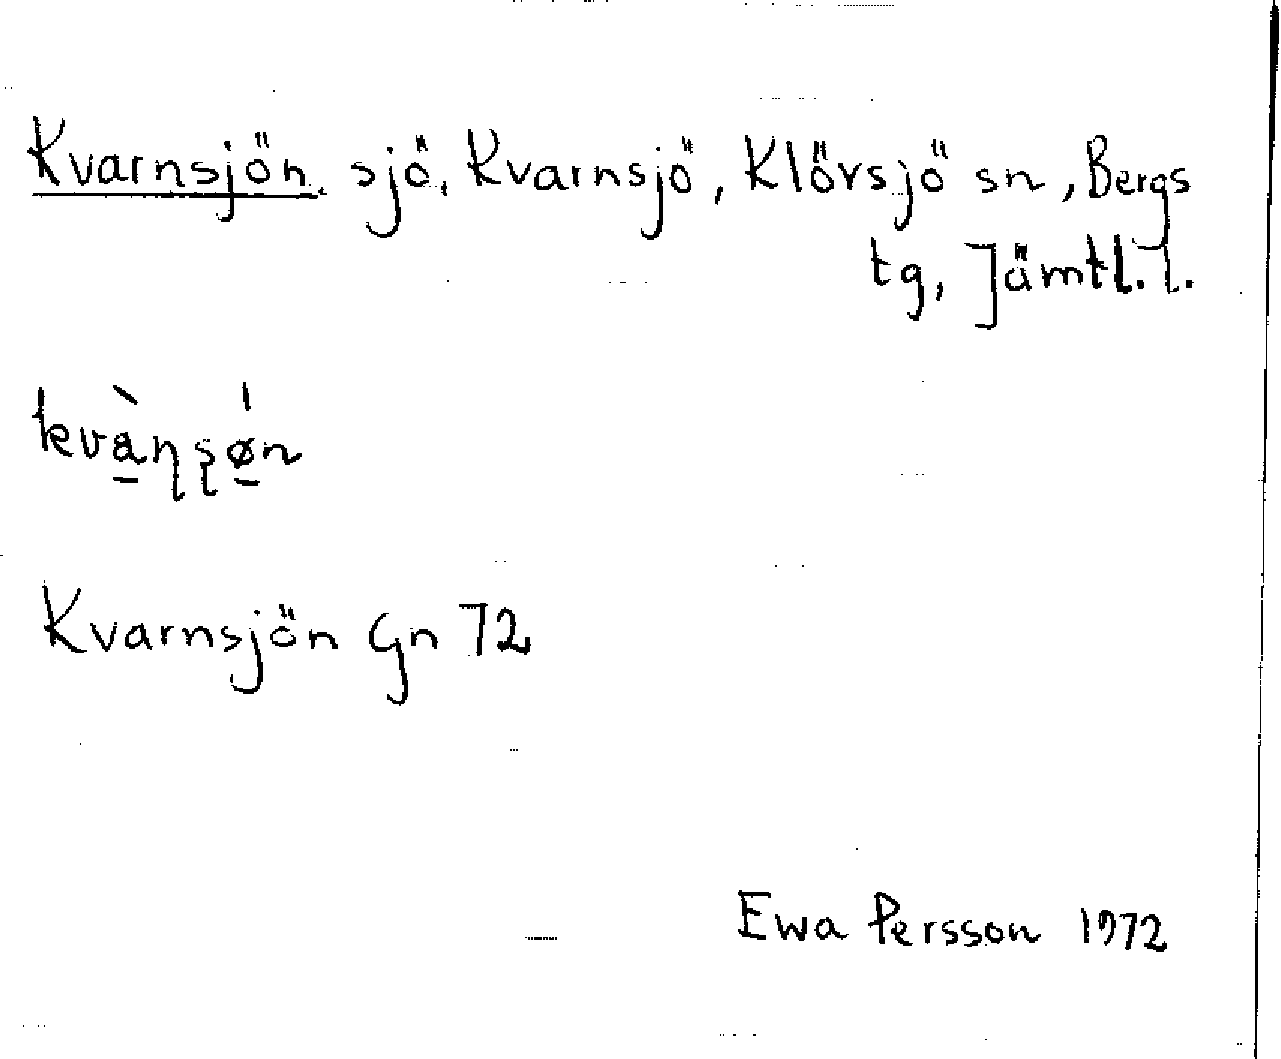 Kvarnsjön, sjö, Kvarnsjö, Klövsjö sn, Bergs
tg, Jämtl. l.
kvàɳʂø̀n
Kvarnsjön Gn 72
Ewa Persson 1972